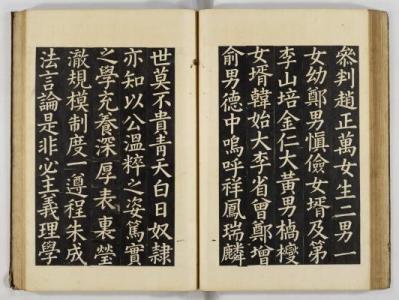 叅判趙正萬女生二男一
女幼鄭男愼儉女壻及第
李山培金仁大黃男
女壻韓始大李省曾鄭增
俞男德中嗚呼祥鳳瑞麟
世莫不貴靑天白日奴隷
亦知以公溫粹之姿篤實
之學充養深厚表裏瑩
澈規模制度一遵程朱成
法言論是非必主義理學